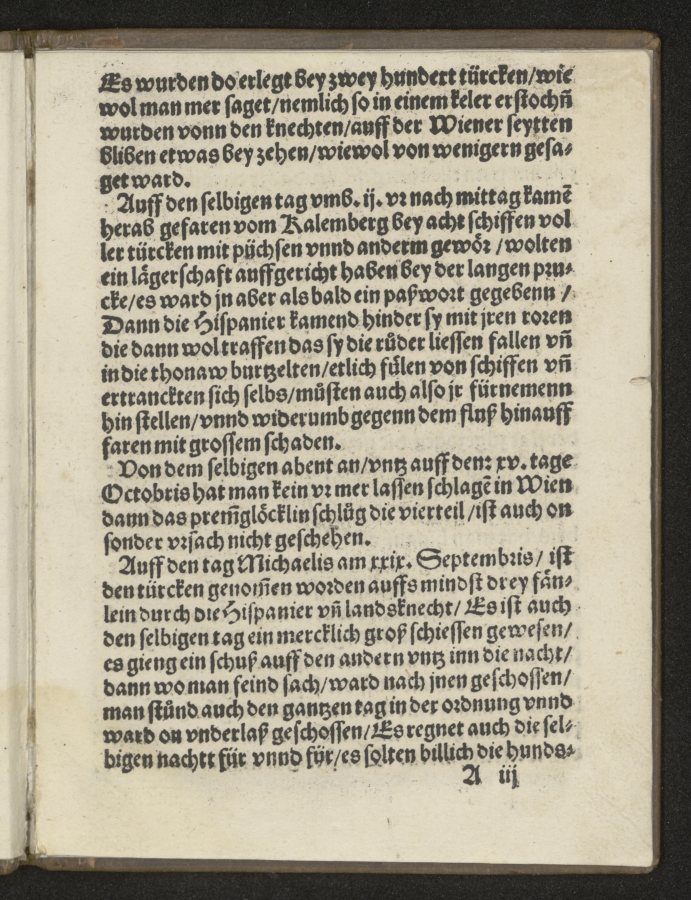 Es wurden do erlegt bey zwey hundert türcken/wie
wol man mer saget/nemlich so in einem keler erstochñ
wurden vonn den knechten/auff der Wiener seytten
bliben etwas bey zehen/wiewol von wenigern gesa⸗
get ward.
Auff den selbigen tag vmb. ij. vr nach mittag kamẽ
herab gefaren vom Kalemberg bey acht schiffen vol
ler türcken mit püchsen vnnd anderm gewör /wolten
ein lägerschafft auffgericht haben bey der langen pru⸗
cke/es ward jn aber als bald ein paßwort gegebenn /
Dann die Hispanier kamend hinder sy mit jren roren
die dann wol traffen das sy die rüder liessen fallen vñ
in die thonaw burtzelten/etlich fülen von schiffen vñ
ertranckten sich selbs/müsten auch also jr fürnemenn
hin stellen/vnnd widerumb gegenn dem fluß hinauff
faren mit grossem schaden.
Von dem selbigen abent an/vntz auff den: xv. tage
Octobris hat man kein vr mer lassen schlagẽ in Wien
dann das prem̃glöcklin schlüg die vierteil /ist auch on
sonder vrsach nicht geschehen.
Auff den tag Michaelis am xxix. Septembris/ ist
den türcken genom̃en worden auffs mindst drey fän⸗
lein durch die Hispanier vñ landsknecht/ Es ist auch
den selbigen tag ein mercklich groß schiessen gewesen/
es gieng ein schuß auff den andern vntz inn die nacht/
dann wo man feind sach/ward nach jnen geschossen/
man stünd auch den gantzen tag in der ordnung vnnd
ward on vnderlaß geschossen/Es regnet auch die sel⸗
bigen nachtt für vnnd für/es solten billich die hunds⸗
A iij